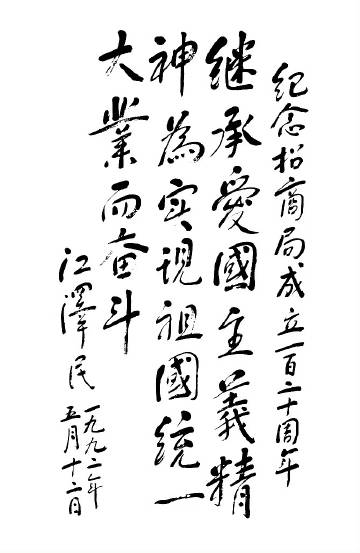 纪念招商局成立一百二十周年
继承爱國主義精
神為实现祖國統一
大業而奋斗
江澤民
一九九二年
五月十二日